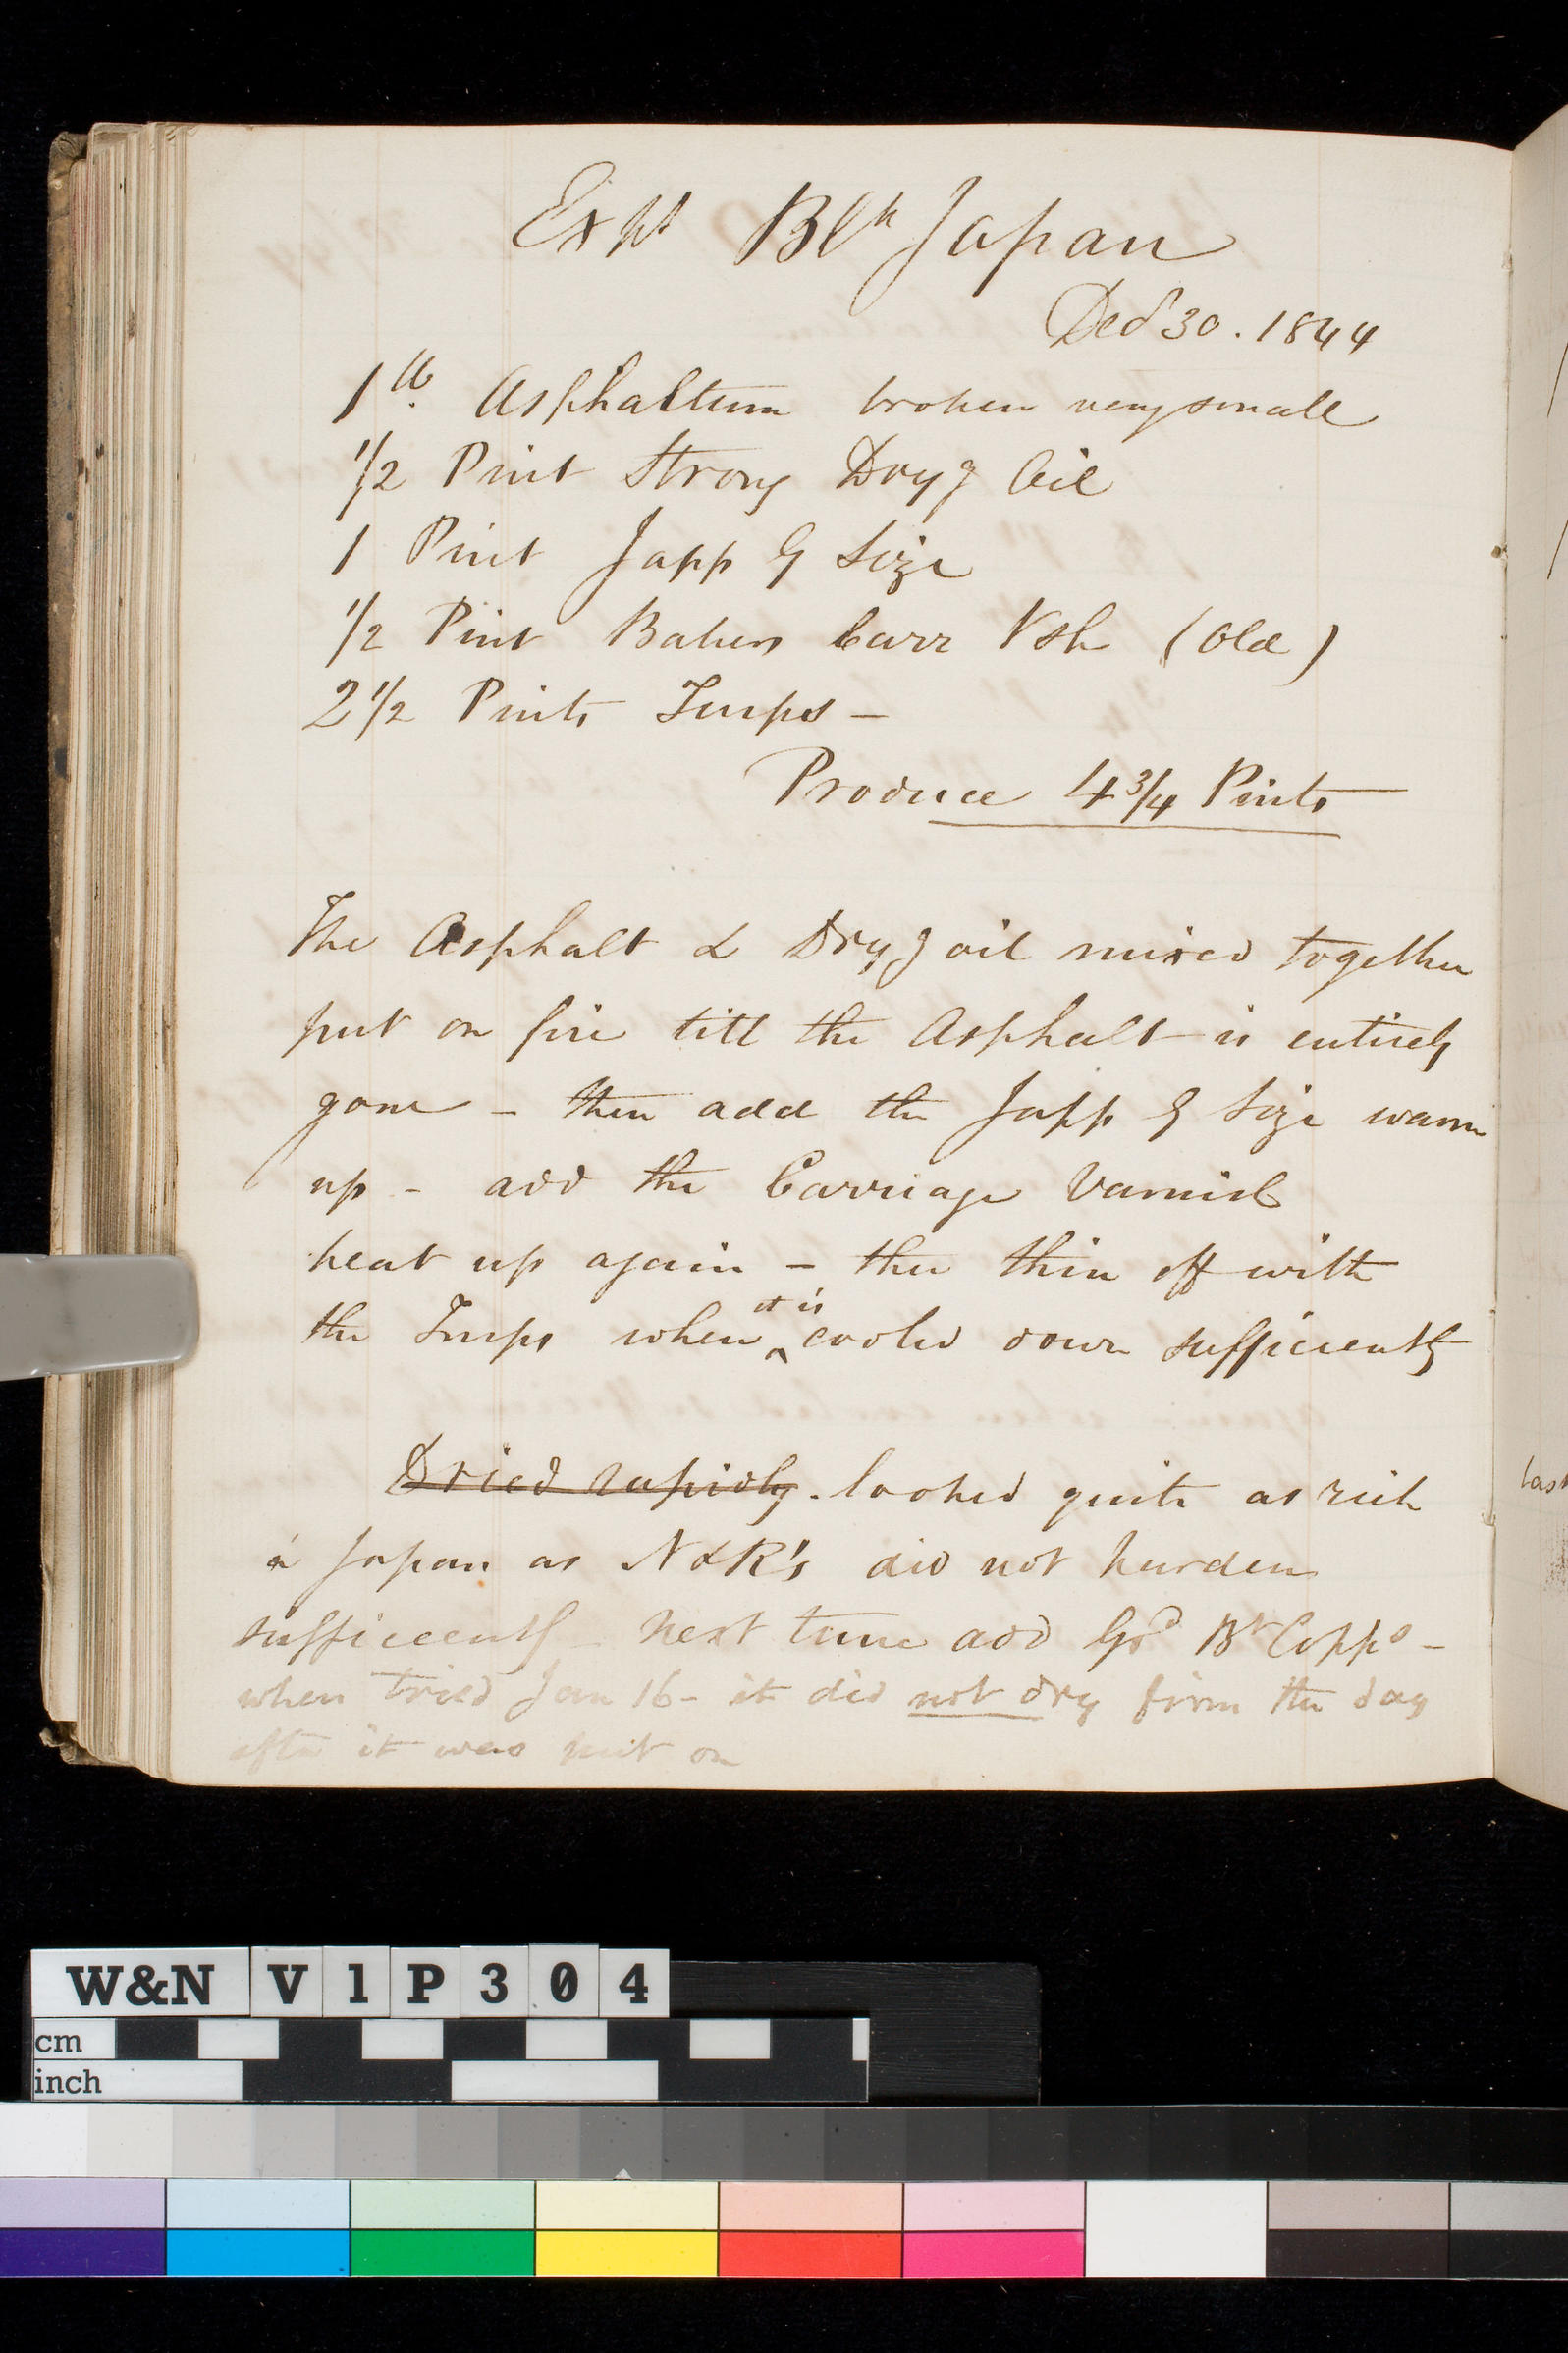 Expt Blk Japan
Decr 30. 1844
1 lb. Asphaltum broken very small
1/2 Pint Strong Dryg Oil
1 Pint Japp G Size
1/2 Pint Bakers Carr Vsh (Old)
2 1/2 Pints Turps –
Produce 4 3/4 Pints
The Asphalt & Dryg oil mixed together
put on fire till the Asphalt is entirely
gone – then add the Japp G Size warm
up – add the Carriage Varnish
heat up again – then thin off with
the Turps when it is cooled down sufficiently
Dried rapidly. looked quite as rich
a Japan as N&R's did not harden
sufficiently – Next time add Grd Bt Copps –
when tried Jan 16 – it did not dry firm the day
after it was put on
last
W&N V1P304
cm
inch